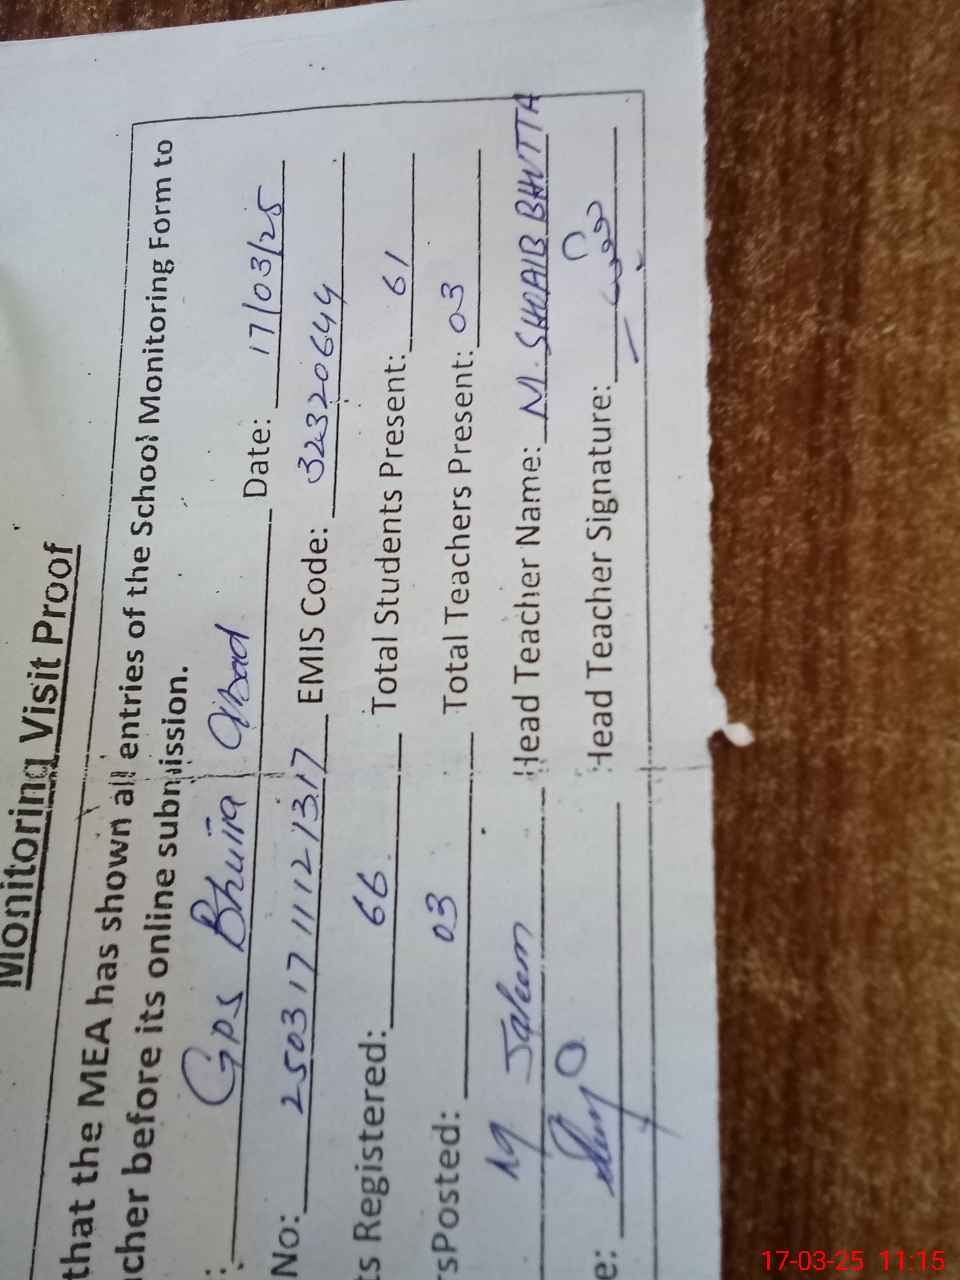 Monitoring Visit Proof
that the MEA has shown all entries of the School Monitoring Form to
cher before its online submission.
: GPS Bhuira Abad Date: 17/03/25
No: 2503171112 1317 EMIS Code: 32320644
ts Registered: 66 Total Students Present: 61
rsPosted: 03 Total Teachers Present: 03
Head Teacher Name: M. SHOAIB BHUTTA
e: Head Teacher Signature:
17-03-25 11:15